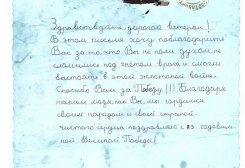 Здравствуйте, дорогой ветеран!
В этом письме хочу поблагодарить
Вас за то, что Вы не пали духом, не
сломились под гнётом врага и смогли
выстоять в этой жестокой войне.
Спасибо Вам за Победу!!! Благодаря
таким людям, как Вы, мы гордимся
своим народом и своей страной.
чистого сердца поздравляю с 65 годовщи-
ной Великой Победы!